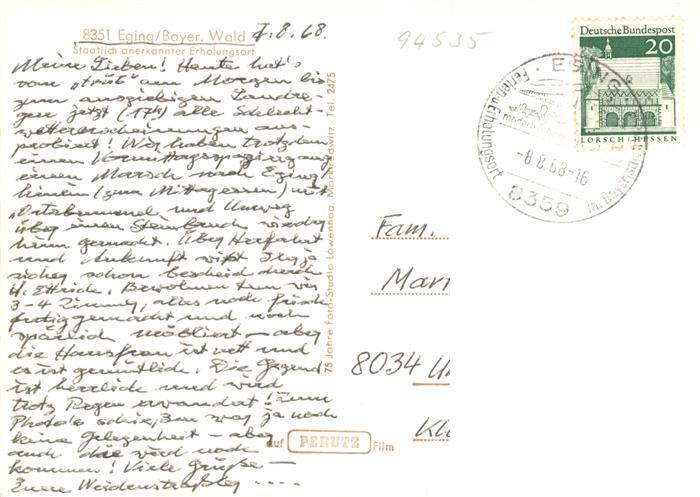 8351 Eging/Bayer. Wald 7.8.68.
Staatlich anerkannter Erholungsort
94535
Meine Lieben! Heute hat's
vom "früh" am Morgen bis
zum ausgiebigen Landre-
gen jetzt (17h) alle Schlecht-
wettererscheinungen aus-
probiert! Wir haben trotzdem
einen Vormittagsspaziergang
einen Marsch nach Eging
hinein (zum Mittagessen) mit
"Ortsbummel" und Umweg
über einen Steinbruch wieder
heim gemacht. Über Herfahrt
und Ankunft wißt Ihr ja
sicher schon bescheid durch
H. Ettrich. Bewohnen tun wir
3-4 Zimmer, alles noch frisch
fertiggemacht und noch
spärlich möbliert - aber
die Hausfrau ist nett und
es ist gemütlich. Die Gegend
ist herrlich und wird
trotz Regen erwandert! Zum
Photo's schießen war ja noch
keine Gelegenheit - aber
auch die wird noch
kommen! Viele Grüße -
Eure
75 Jahre Foto-Studio Löwenhag, Marktredwitz, Tel. 2475
auf PERUTZ Film
Deutsche Bundespost
20
LORSCH/HESSEN
EGING
Ferien-u. Erholungsort
-8.8.68-16
8359
Fam.
8034